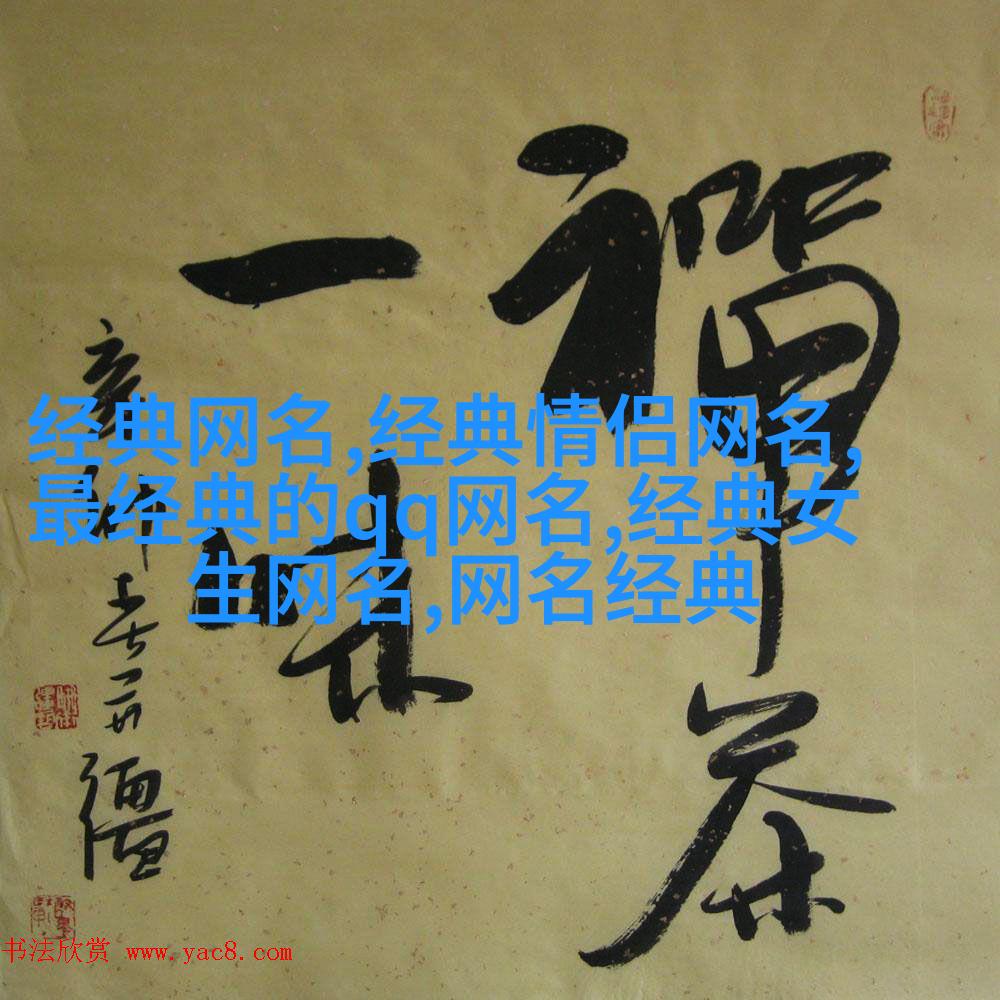 禅茶
一味
辛卯春一丹
经典网名,经典情侣网名,
最经典的qq网名,经典女
生网名,网名经典
书法欣赏 www.yac8.com